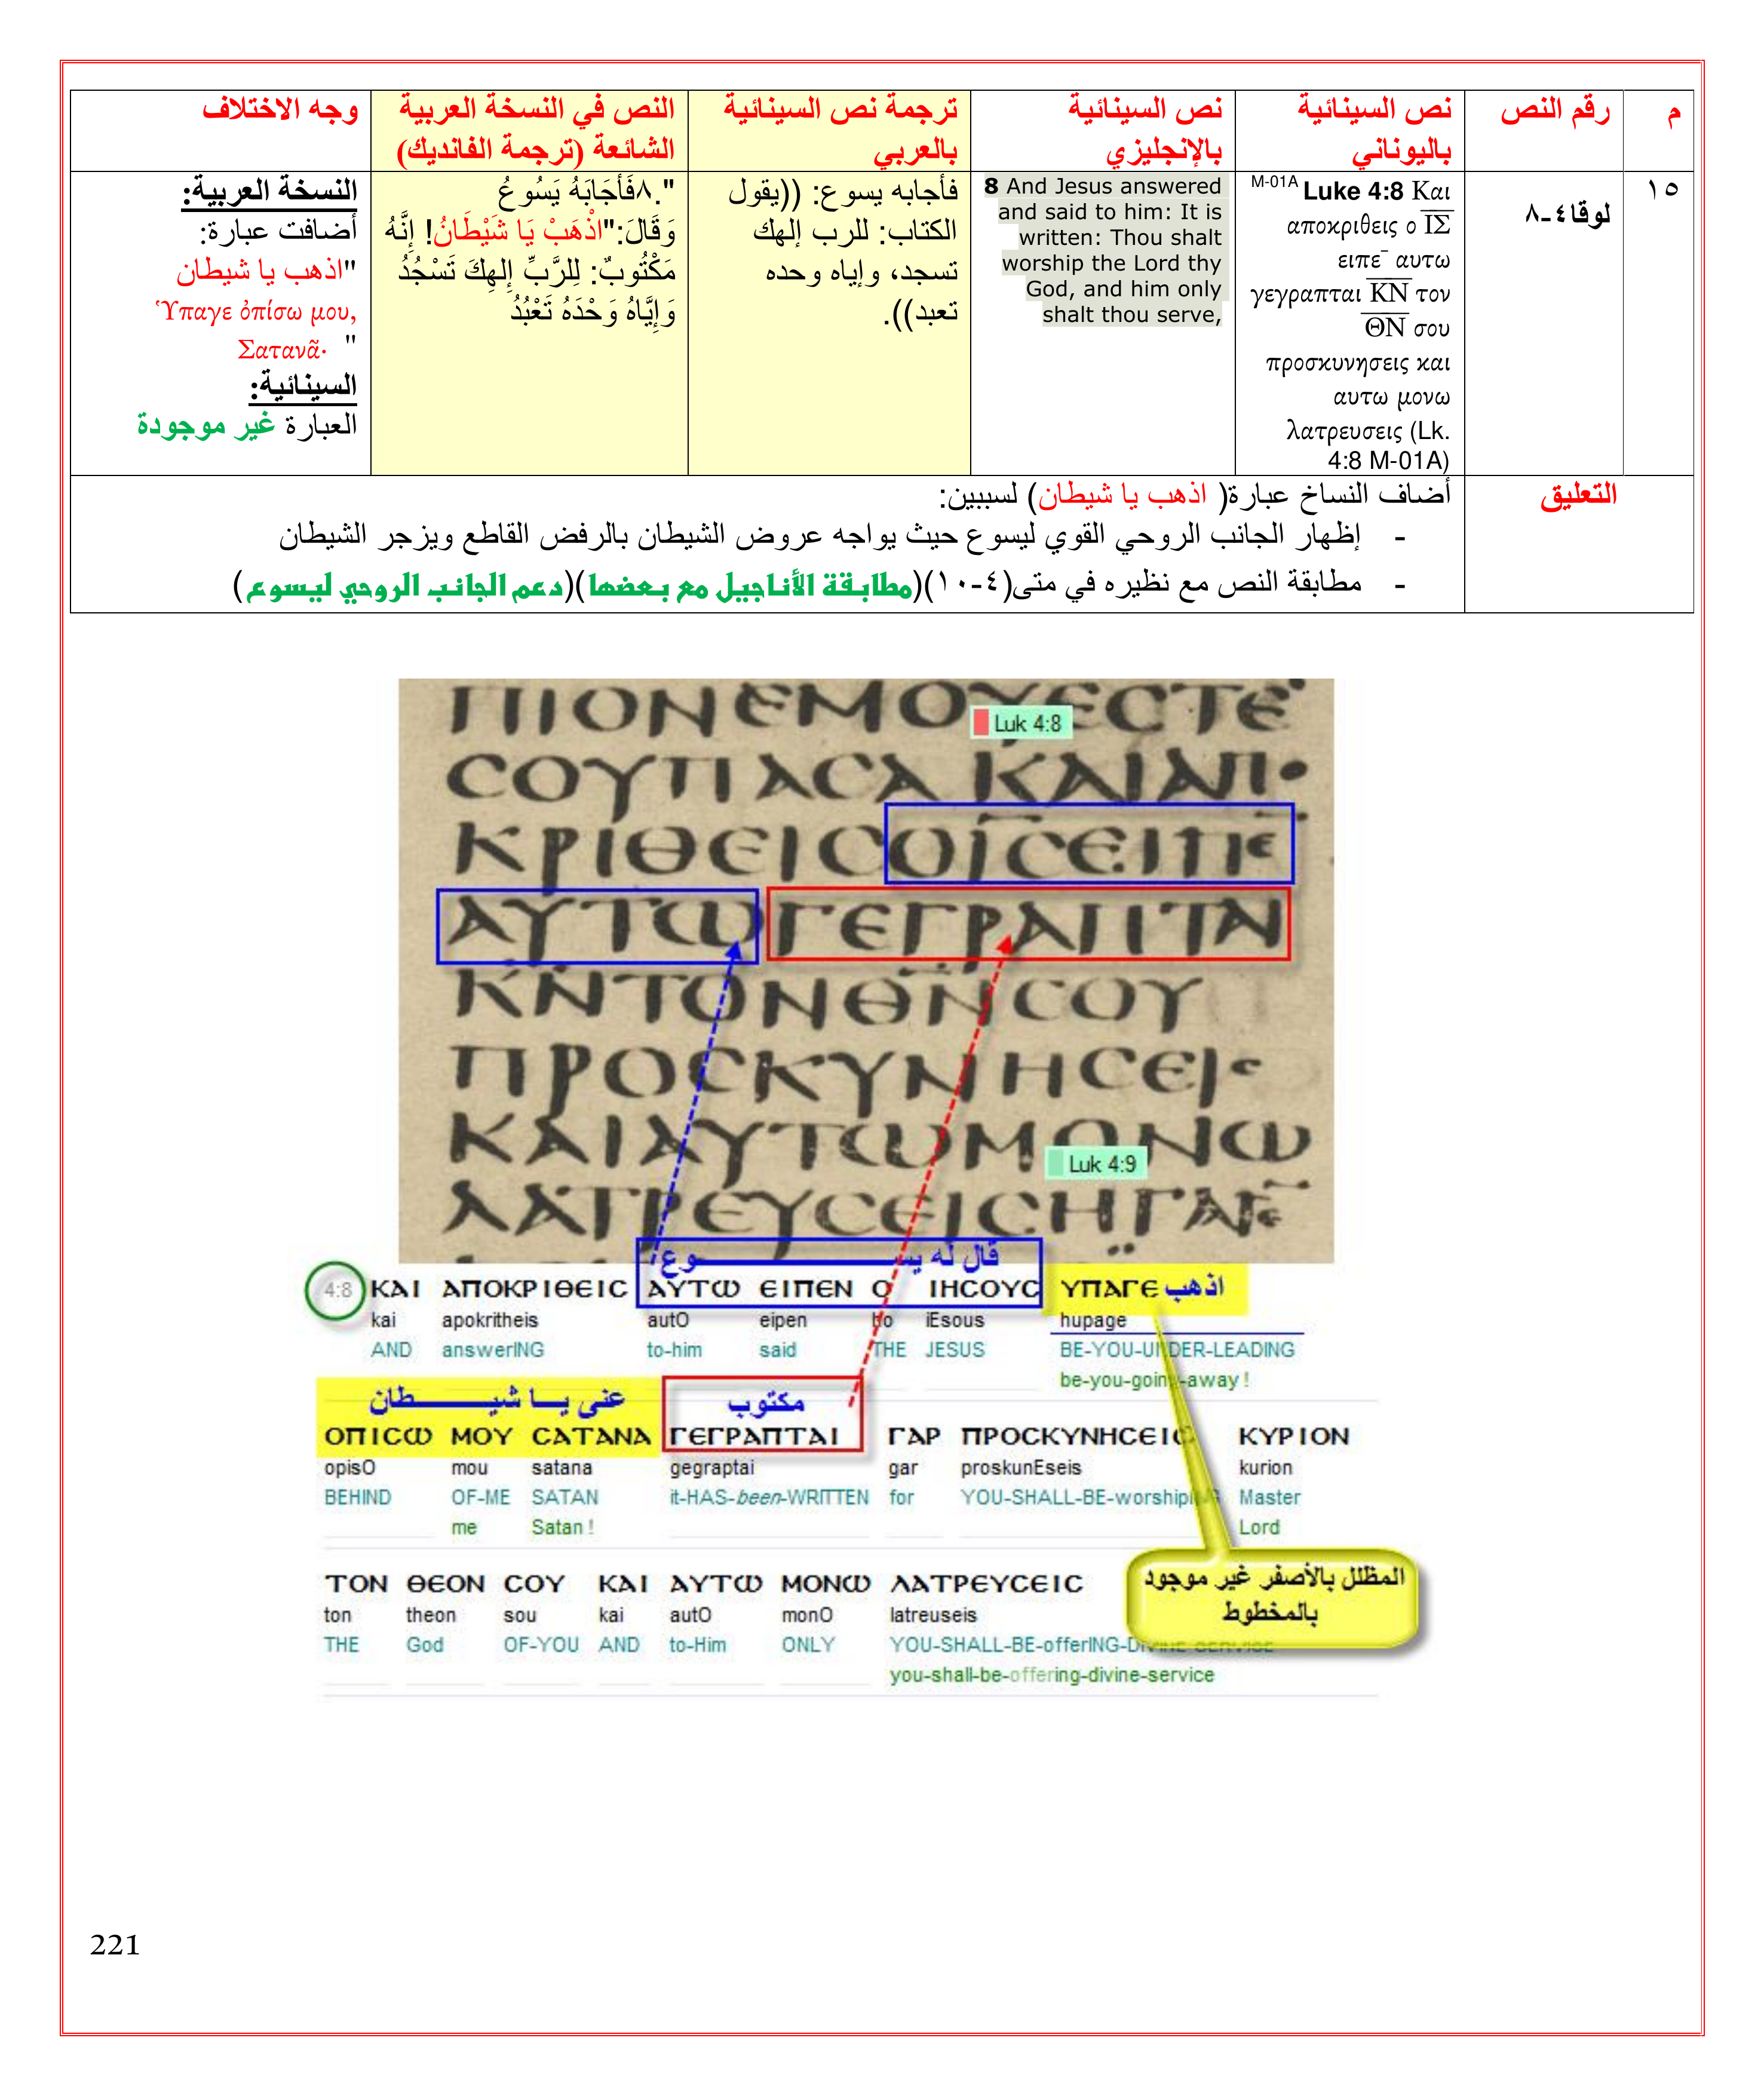 م
رقم النص
نص السينائية
باليوناني
نص السينائية
بالإنجليزي
ترجمة نص السينائية
بالعربي
النص في النسخة العربية
الشائعة (ترجمة الفانديك)
وجه الاختلاف
١٥
لوقا٤-٨
M-01A Luke 4:8 Και
αποκριθεις ο ΙΣ
ειπε¯ αυτω
γεγραπται ΚΝ τον
ΘΝ σου
προσκυνησεις και
αυτω μονω
λατρευσεις (Lk.
4:8 M-01A)
8 And Jesus answered
and said to him: It is
written: Thou shalt
worship the Lord thy
God, and him only
shalt thou serve,
فأجابه يسوع: ((يقول
الكتاب: للرب إلهك
تسجد، وإياه وحده
تعبد)).
".٨فَأَجَابَهُ يَسُوعُ
وَقَالَ:"اذْهَبْ يَا شَيْطَانُ! إِنَّهُ
مَكْتُوبٌ: لِلرَّبِّ إِلهِكَ تَسْجُدُ
وَإِيَّاهُ وَحْدَهُ تَعْبُدُ
النسخة العربية:
أضافت عبارة:
"اذهب يا شيطان
Ὕπαγε ὀπίσω μου,
Σατανᾶ· "
السينائية:
العبارة غير موجودة
التعليق
أضاف النساخ عبارة( اذهب يا شيطان) لسببين:
- إظهار الجانب الروحي القوي ليسوع حيث يواجه عروض الشيطان بالرفض القاطع ويزجر الشيطان
- مطابقة النص مع نظيره في متى(٤-١٠)(مطابقة الأناجيل مع بعضها)(دعم الجانب الروحي ليسوع)
ΠΙΟΝΕΜΟΥΕϹΤΕ
Luk 4:8
ϹΟΥΠΑϹΑ ΚΑΙΑΠΟ
ΚΡΙΘΕΙϹΟΙϹΕΙΠΕ
ΑΥΤΩΓΕΓΡΑΠΤΑΙ
ΚΝΤΟΝΘΝϹΟΥ
ΠΡΟϹΚΥΝΗϹΕΙϹ
ΚΑΙΑΥΤΩΜΟΝΩ
Luk 4:9
ΛΑΤΡΕΥϹΕΙϹΗΓΑΓΕ
قال له يســـوع
اذهب
4:8 ΚΑΙ ΑΠΟΚΡΙΘΕΙϹ ΑΥΤΩ ΕΙΠΕΝ Ο ΙΗϹΟΥϹ ΥΠΑΓΕ
kai apokritheis autO eipen ho iEsous hupage
AND answerING to-him said THE JESUS BE-YOU-UNDER-LEADING
be-you-going-away !
عنى يــا شيـــــطان
مكتوب
ΟΠΙϹΩ ΜΟΥ ϹΑΤΑΝΑ ΓΕΓΡΑΠΤΑΙ ΓΑΡ ΠΡΟϹΚΥΝΗϹΕΙϹ ΚΥΡΙΟΝ
opisO mou satana gegraptai gar proskunEseis kurion
BEHIND OF-ME SATAN it-HAS-been-WRITTEN for YOU-SHALL-BE-worshipING Master
me Satan ! Lord
ΤΟΝ ΘΕΟΝ ϹΟΥ ΚΑΙ ΑΥΤΩ ΜΟΝΩ ΛΑΤΡΕΥϹΕΙϹ
ton theon sou kai autO monO latreuseis
THE God OF-YOU AND to-Him ONLY YOU-SHALL-BE-offerING-DIVINE-SERVICE
you-shall-be-offering-divine-service
المظلل بالأصفر غير موجود
بالمخطوط
221